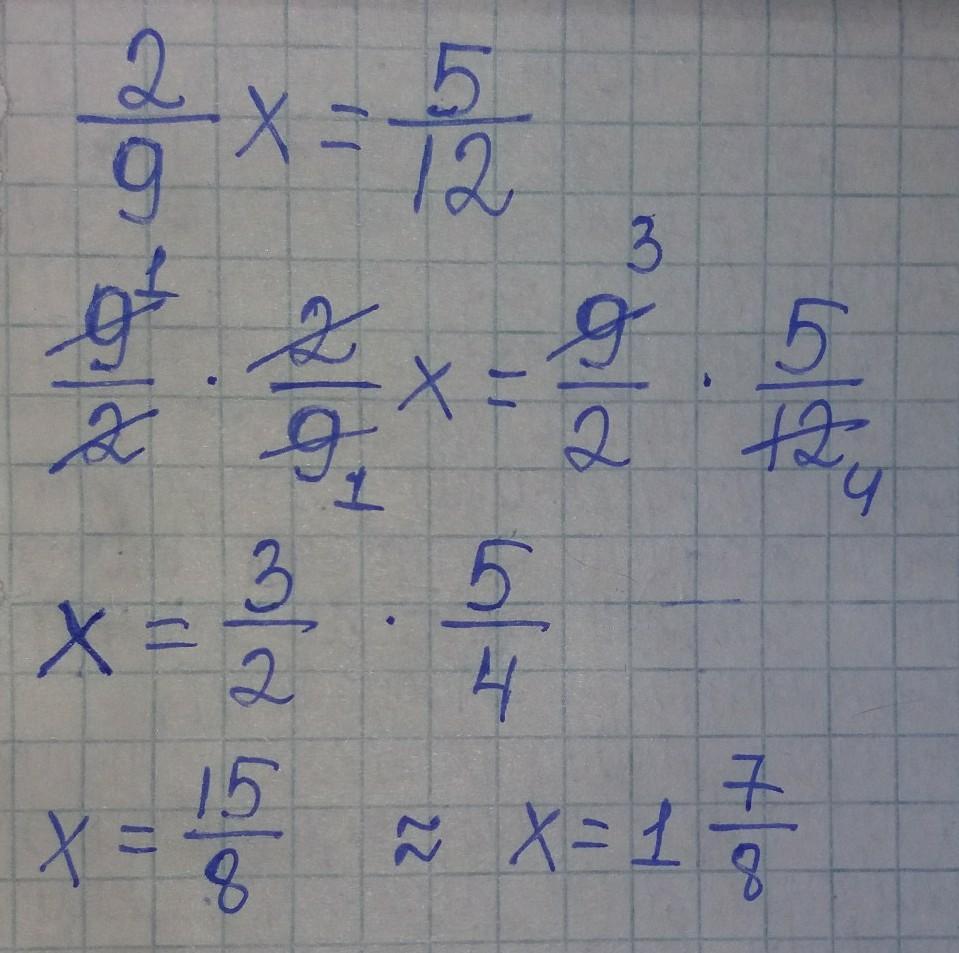 2/9 x = 5/12
9¹/2 · 2/9₁ x = 9³/2 · 5/12₄
x = 3/2 · 5/4
x = 15/8 ≈ x = 1 7/8